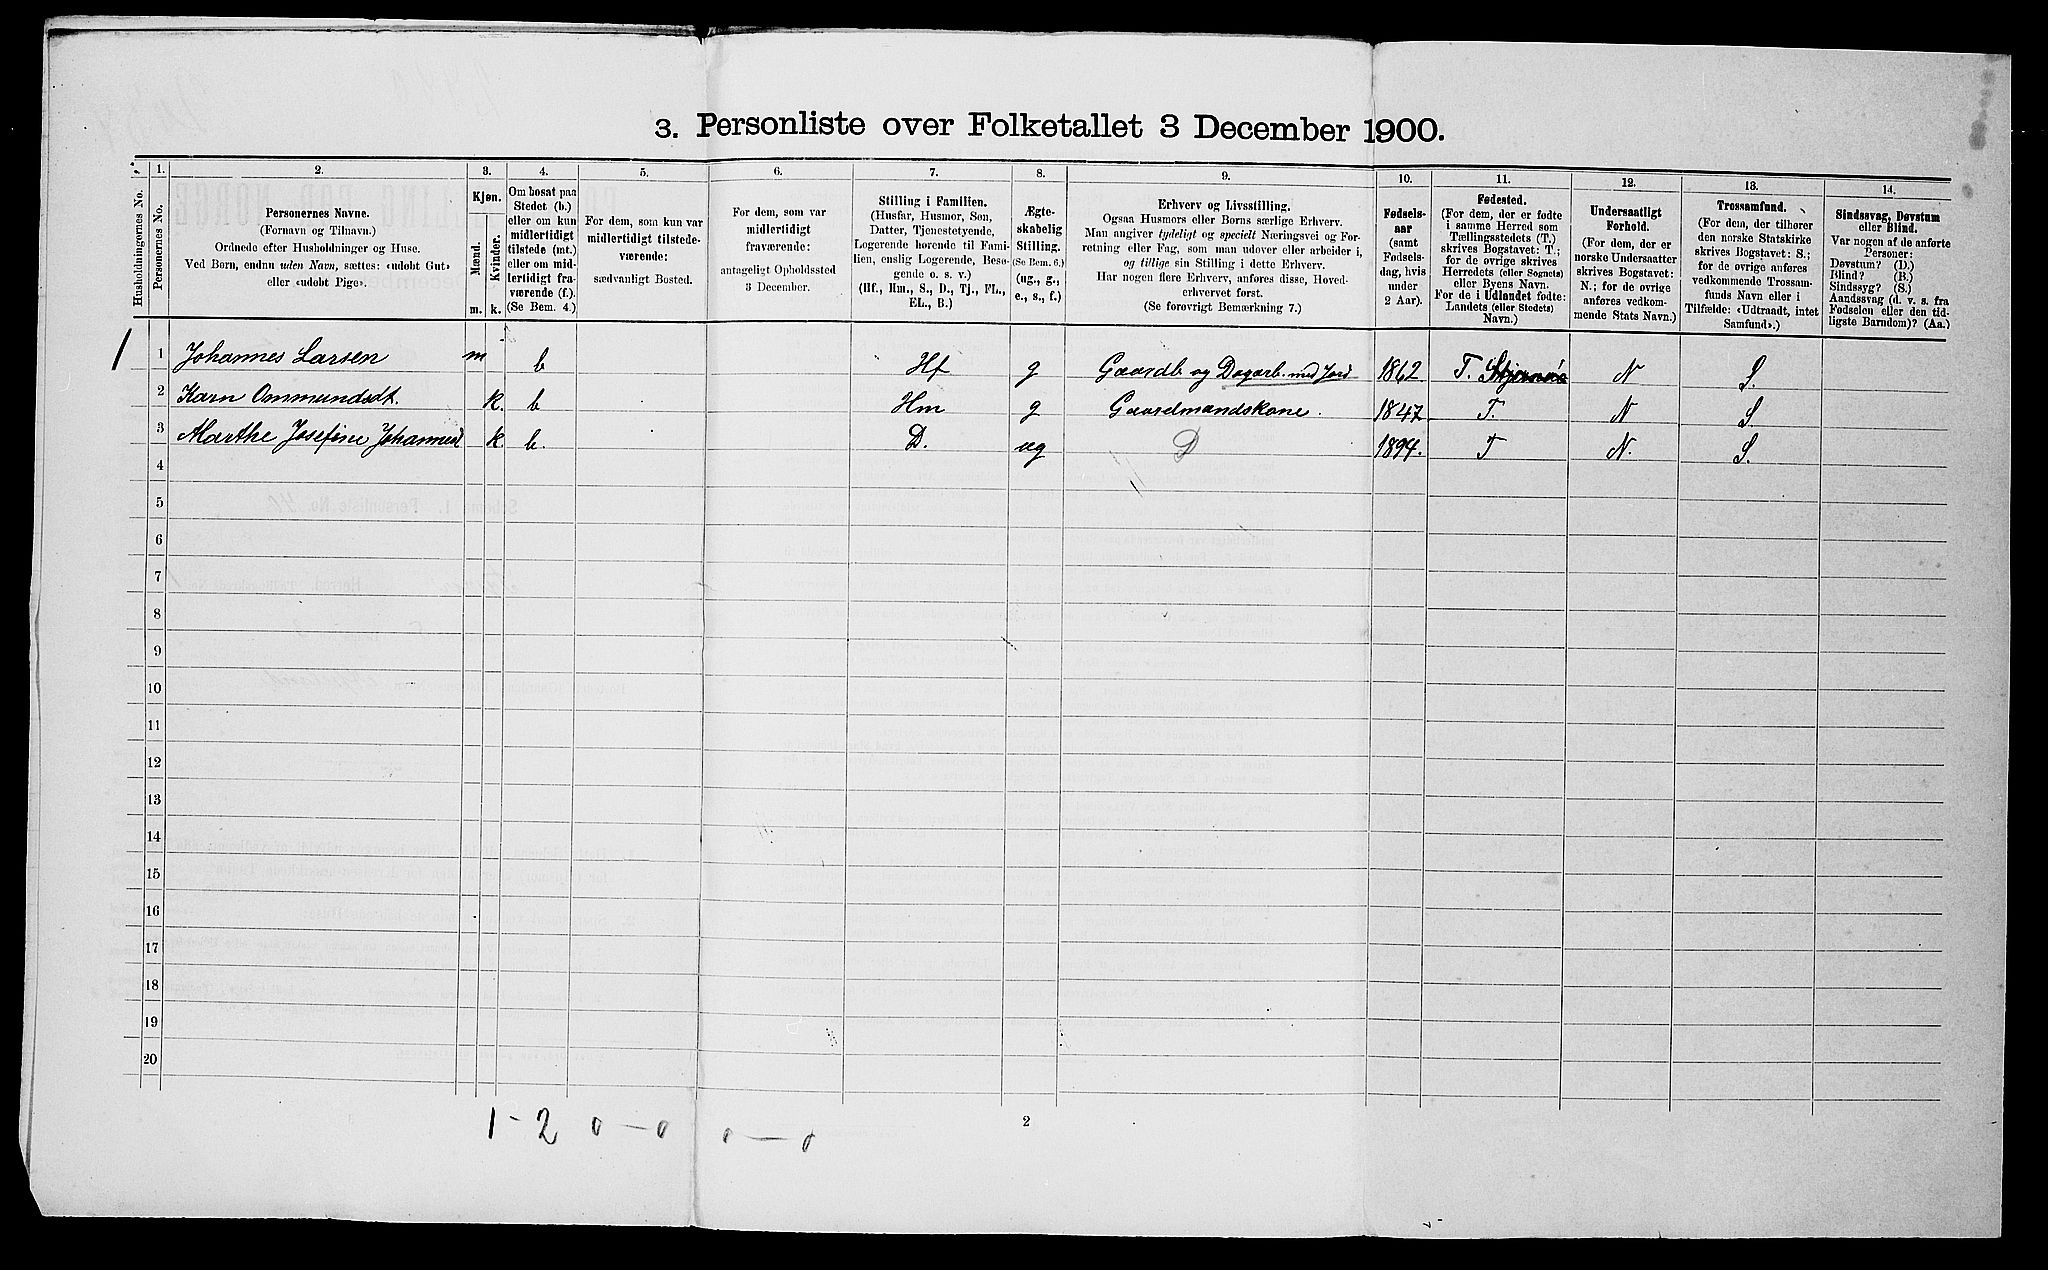 3. Personliste over Folketallet 3 December 1900.
Husholdningernes No.
1. Personernes No.
2.
Personernes Navne.
(Fornavn og Tilnavn.)
Ordnede efter Husholdninger og Huse.
Ved Børn, endnu uden Navn, sættes: «udøbt Gut»
eller «udøbt Pige».
3.
Kjøn.
Mænd.
Kvinder.
m. k.
4.
Om bosat paa
Stedet (b.)
eller om kun
midlertidigt
tilstede (mt.)
eller om mid-
lertidigt fra-
værende (f.).
(Se Bem. 4.)
5.
For dem, som kun var
midlertidigt tilstede-
værende:
sædvanligt Bosted.
6.
For dem, som var
midlertidigt
fraværende:
antageligt Opholdssted
3 December.
7.
Stilling i Familien.
(Husfar, Husmor, Søn,
Datter, Tjenestetyende,
Logerende hørende til Fami-
lien, enslig Logerende, Besø-
gende o. s. v.)
(Hf., Hm., S., D., Tj., FL.,
EL., B.)
8.
Ægte-
skabelig
Stilling.
(Se Bem. 6.)
(ug., g.,
e., s., f.)
9.
Erhverv og Livsstilling.
Ogsaa Husmors eller Børns særlige Erhverv.
Man angiver tydeligt og specielt Næringsvei og For-
retning eller Fag, som man udøver eller arbeider i,
og tillige sin Stilling i dette Erhverv.
Har nogen flere Erhverv, anføres disse, Hoved-
erhvervet først.
(Se forøvrigt Bemærkning 7.)
10.
Fødsels-
aar
(samt
Fødsels-
dag, hvis
under
2 Aar).
11.
Fødested.
(For dem, der er fødte
i samme Herred som
Tællingsstedets (T.)
skrives Bogstavet: T.;
for de øvrige skrives
Herredets (eller Sognets)
eller Byens Navn.
For de i Udlandet fødte:
Landets (eller Stedets)
Navn.)
12.
Undersaatligt
Forhold.
(For dem, der er
norske Undersaatter
skrives Bogstavet:
N.; for de øvrige
anføres vedkom-
mende Stats Navn.)
13.
Trossamfund.
(For dem, der tilhører
den norske Statskirke
skrives Bogstavet: S.;
for de øvrige anføres
vedkommende Trossam-
funds Navn eller i
Tilfælde: «Udtraadt, intet
Samfund».)
14.
Sindssvag, Døvstum
eller Blind.
Var nogen af de anførte
Personer:
Døvstum? (D.)
Blind? (B.)
Sindssyg? (S.)
Aandssvag (d. v. s. fra
Fødselen eller den tid-
ligste Barndom)? (Aa.)
1 1 Johannes Larsen m b Hf g Gaardb og Dagarb. med Jord 1862 T. N S.
2 Karn Ommundsdt. k. b Hm g Gaardmandskone. 1847 T. N S.
3 Marthe Josefine Johannesd k b. D. ug D 1894. T N. S.
4
5
6
7
8
9
10
11
12
13
14
15
16
17
18
19
20
1 - 2 0 - 0 0 - 0
2